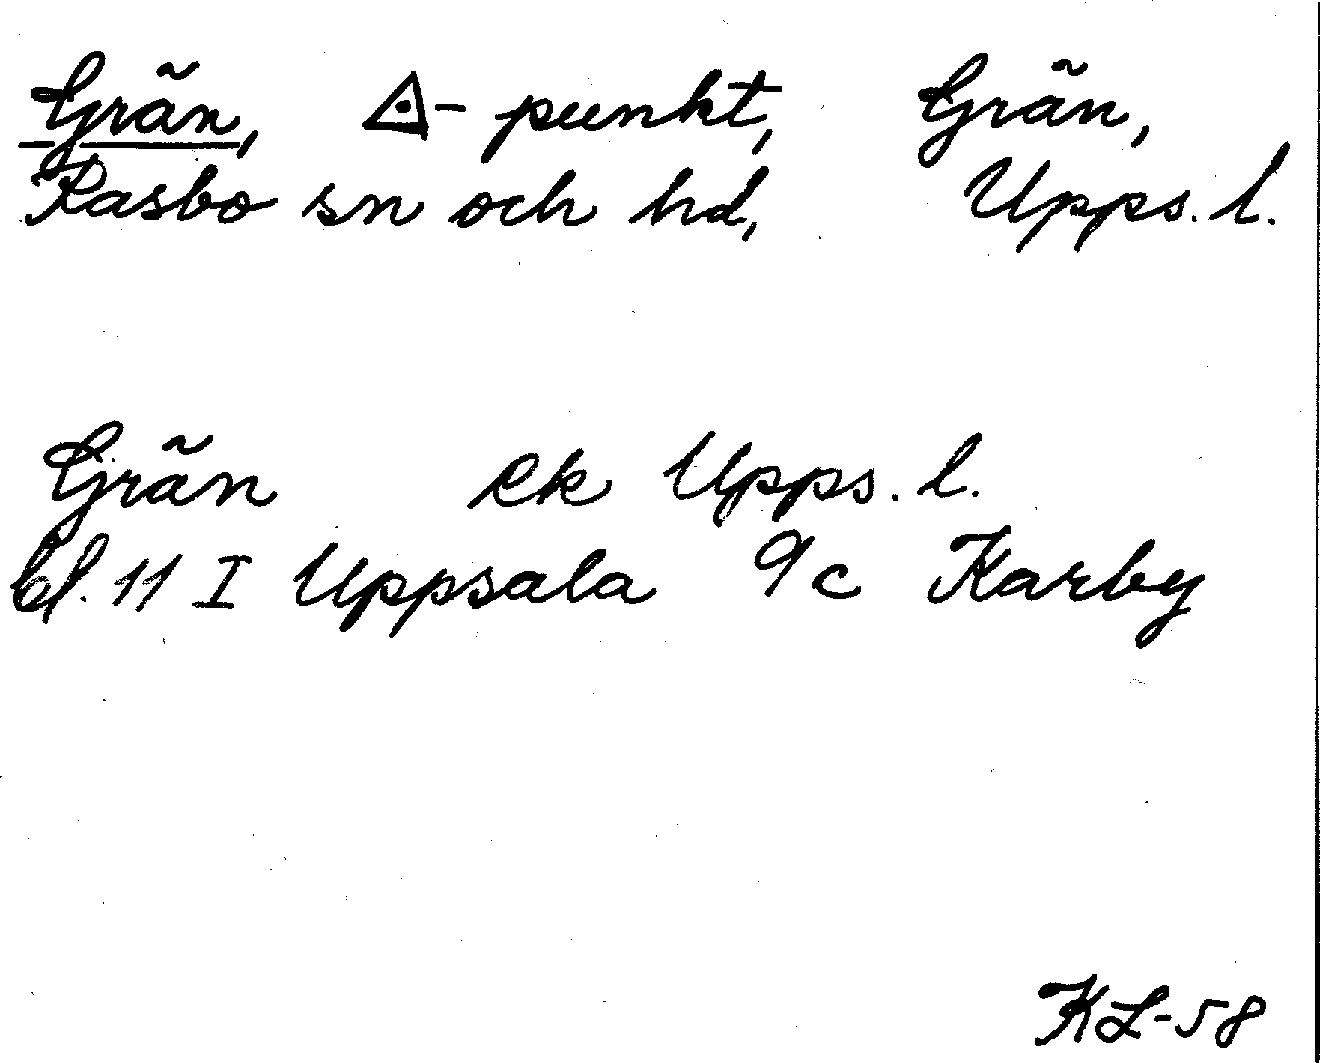 Grän, △-punkt, Grän,
Rasbo sn och hd, Upps. l.
Grän ek Upps. l.
bl. 11 I Uppsala 9c Karby
KL-58